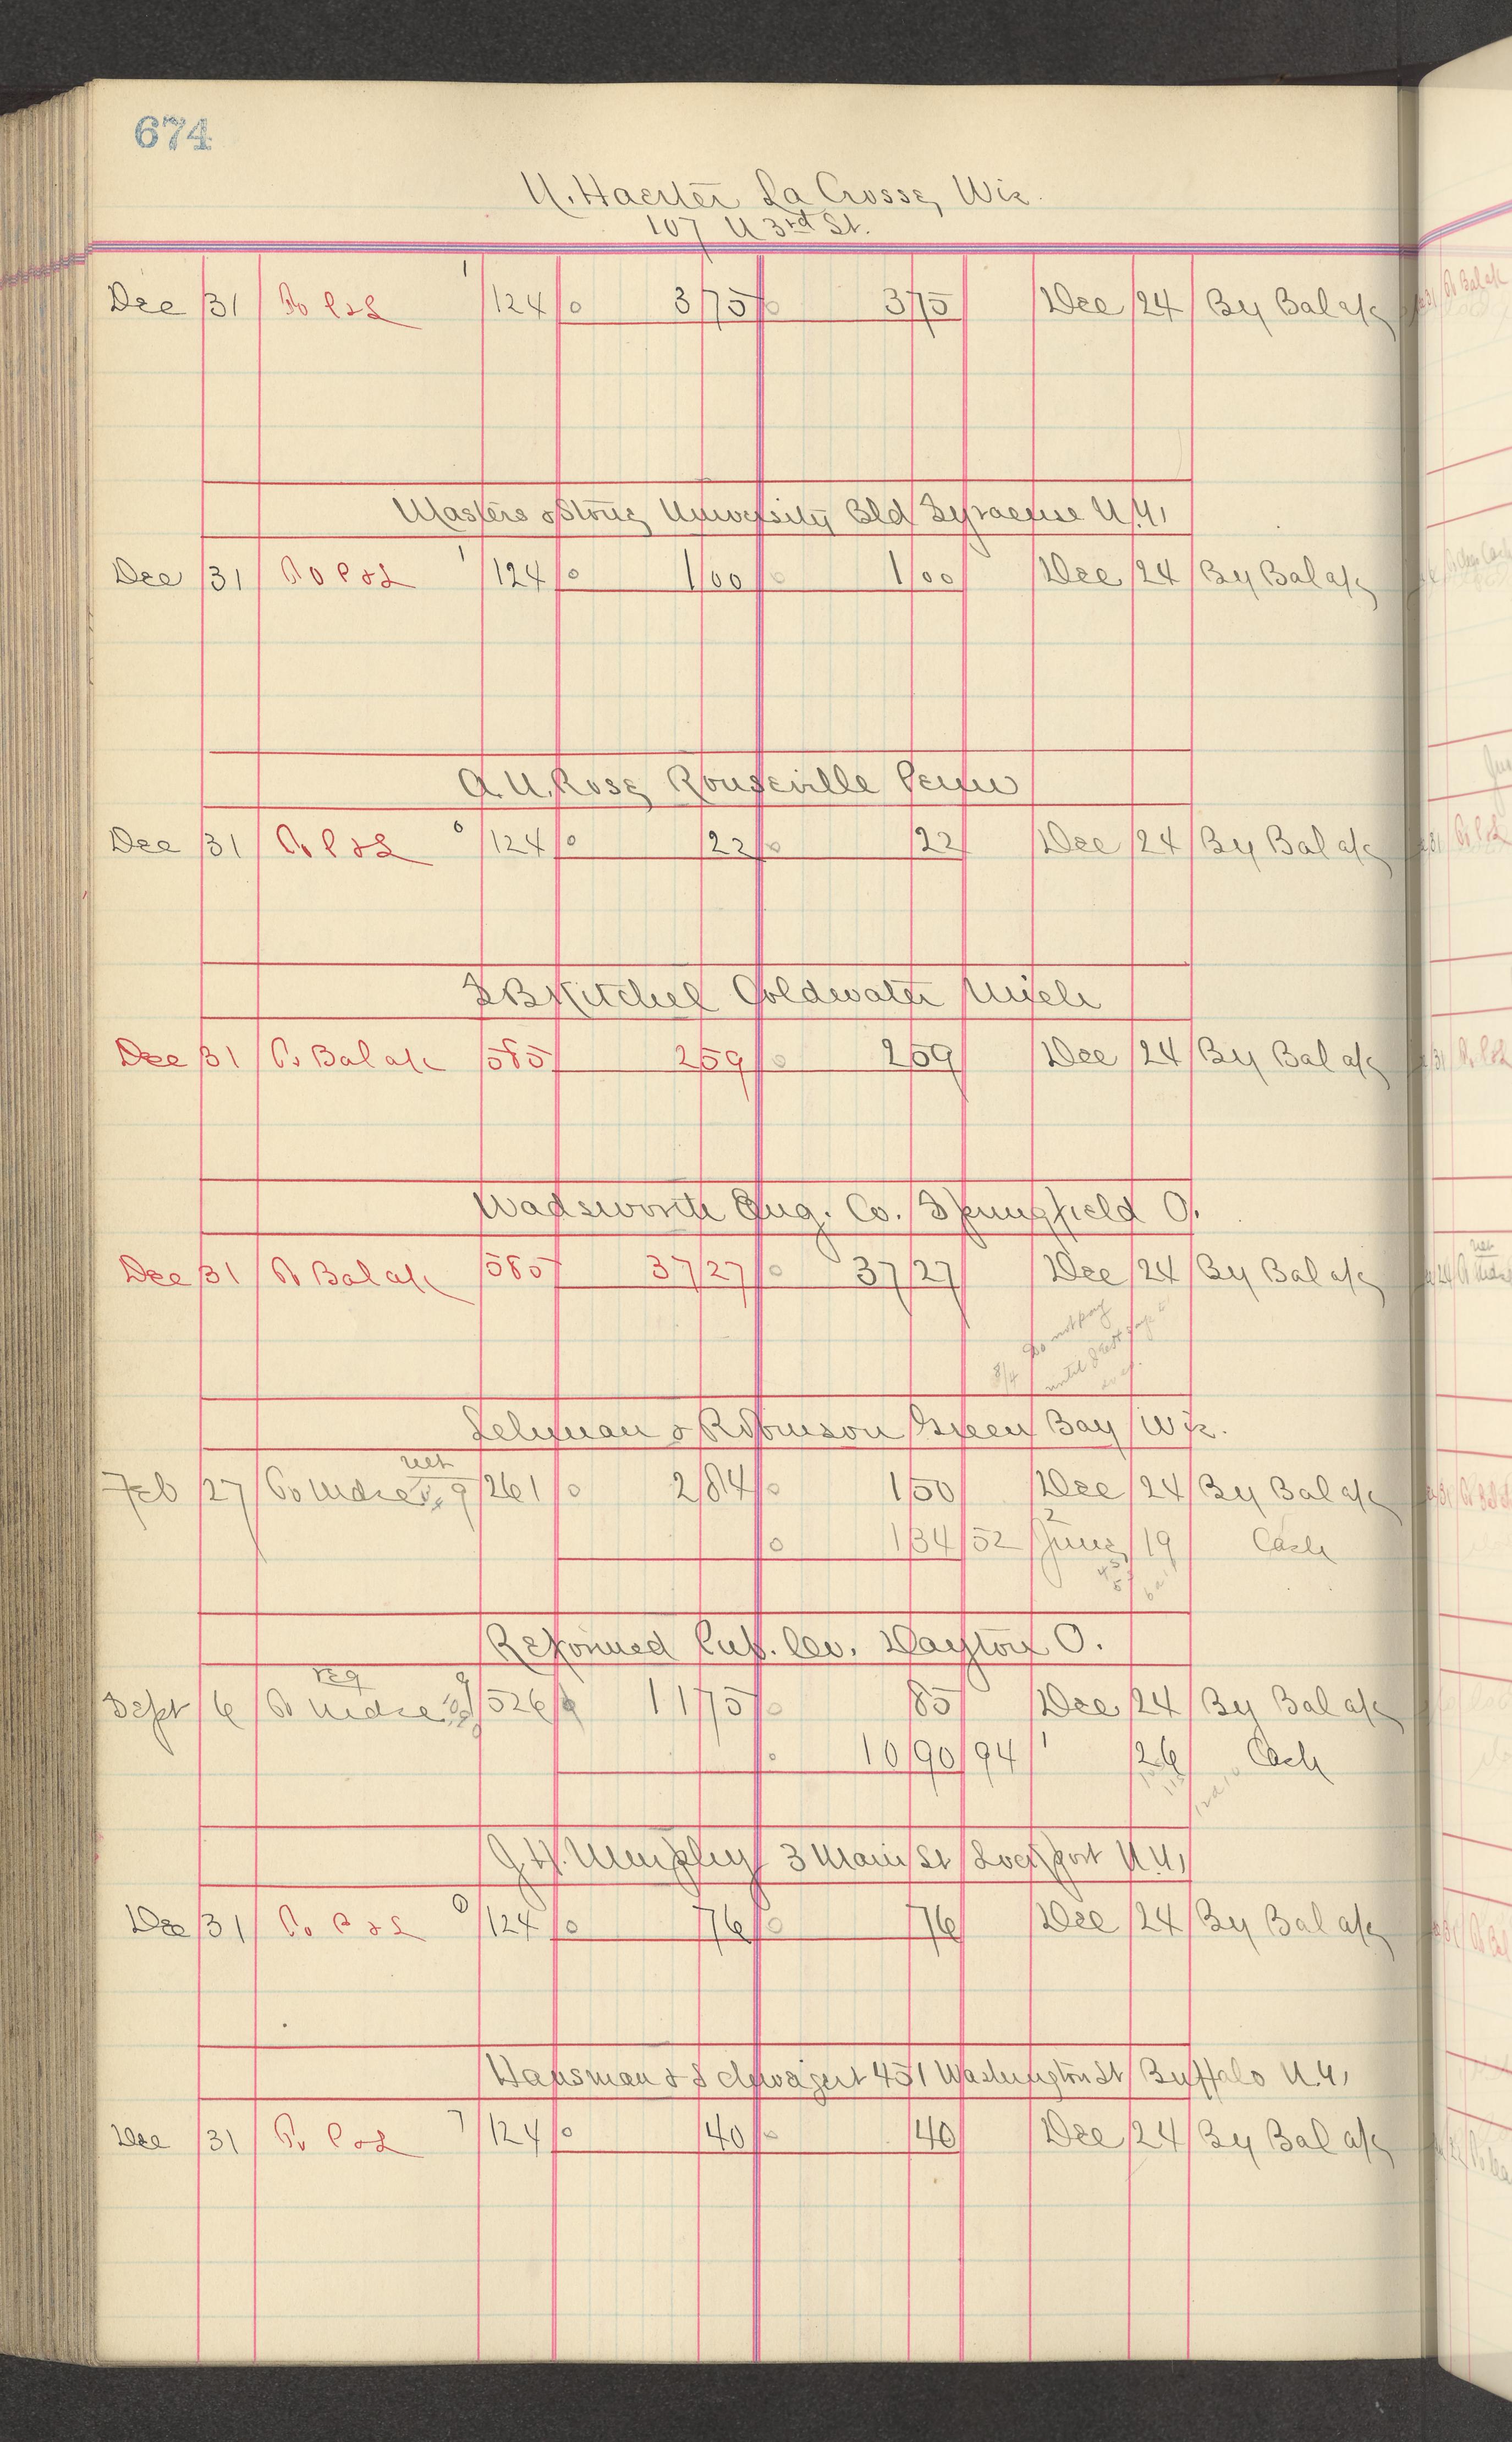 674
N. Haerter La Crosse, Wis.
107 N 3rd St.
Dec 31 To P & L 1 124 0 3 75 0 3 75 Dec 24 By Bal a/c
Masters & Stone University Bld Syracuse N.Y.
Dec 31 To P & L 1 124 0 1 00 0 1 00 Dec 24 By Bal a/c
A. N. Rose, Rouseville Penn
Dec 31 To P & L 0 124 0 22 0 22 Dec 24 By Bal a/c
Kitchel Coldwater Mich
Dec 31 To Bal a/c 585 2 59 0 2 59 Dec 24 By Bal a/c
Wadsworth Eng. Co. Springfield O.
Dec 31 To Bal a/c 585 37 27 0 37 27 Dec 24 By Bal a/c
Do not pay
8/4 until
Lehman & Robinson Green Bay Wis.
net
Feb 27 To Mdse 9 261 0 2 84 0 1 50 Dec 24 By Bal a/c
0 1 34 52 June 19 Cash
Reformed Pub. Co. Dayton O.
reg 9
Sept 6 To Mdse 526 11 75 0 85 Dec 24 By Bal a/c
0 10 90 94 1 26 Cash
J. H. Murphy 3 Main St Lockport N.Y.
Dec 31 To P & L 0 124 0 76 0 76 Dec 24 By Bal a/c
Hausman & Schwagert 451 Washington St Buffalo N.Y.
Dec 31 To P & L 7 124 0 40 0 40 Dec 24 By Bal a/c